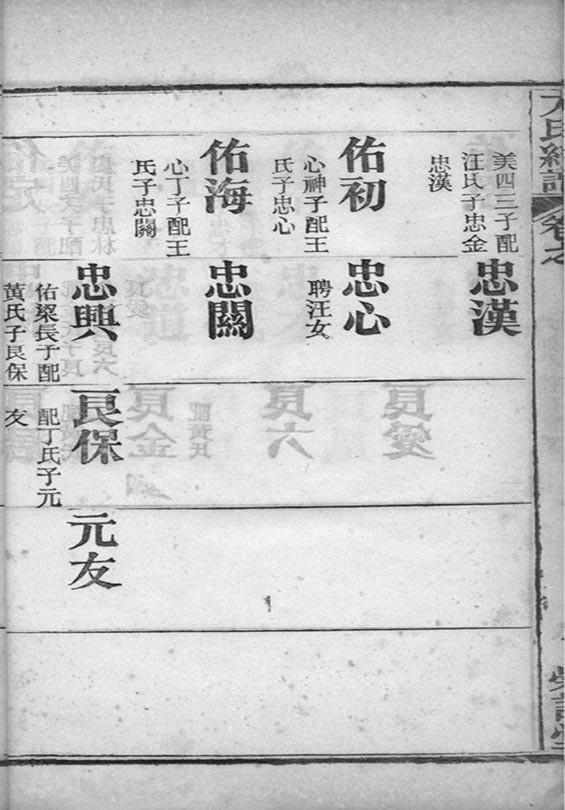 美四三子配
汪氏子忠金
忠漢
忠漢
佑初
心神子配王
氏子忠心
忠心
聘汪女
佑海
心丁子配王
氏子忠關
忠關
忠興
佑梁長子配
黃氏子良保
良保
配丁氏子元
友
元友